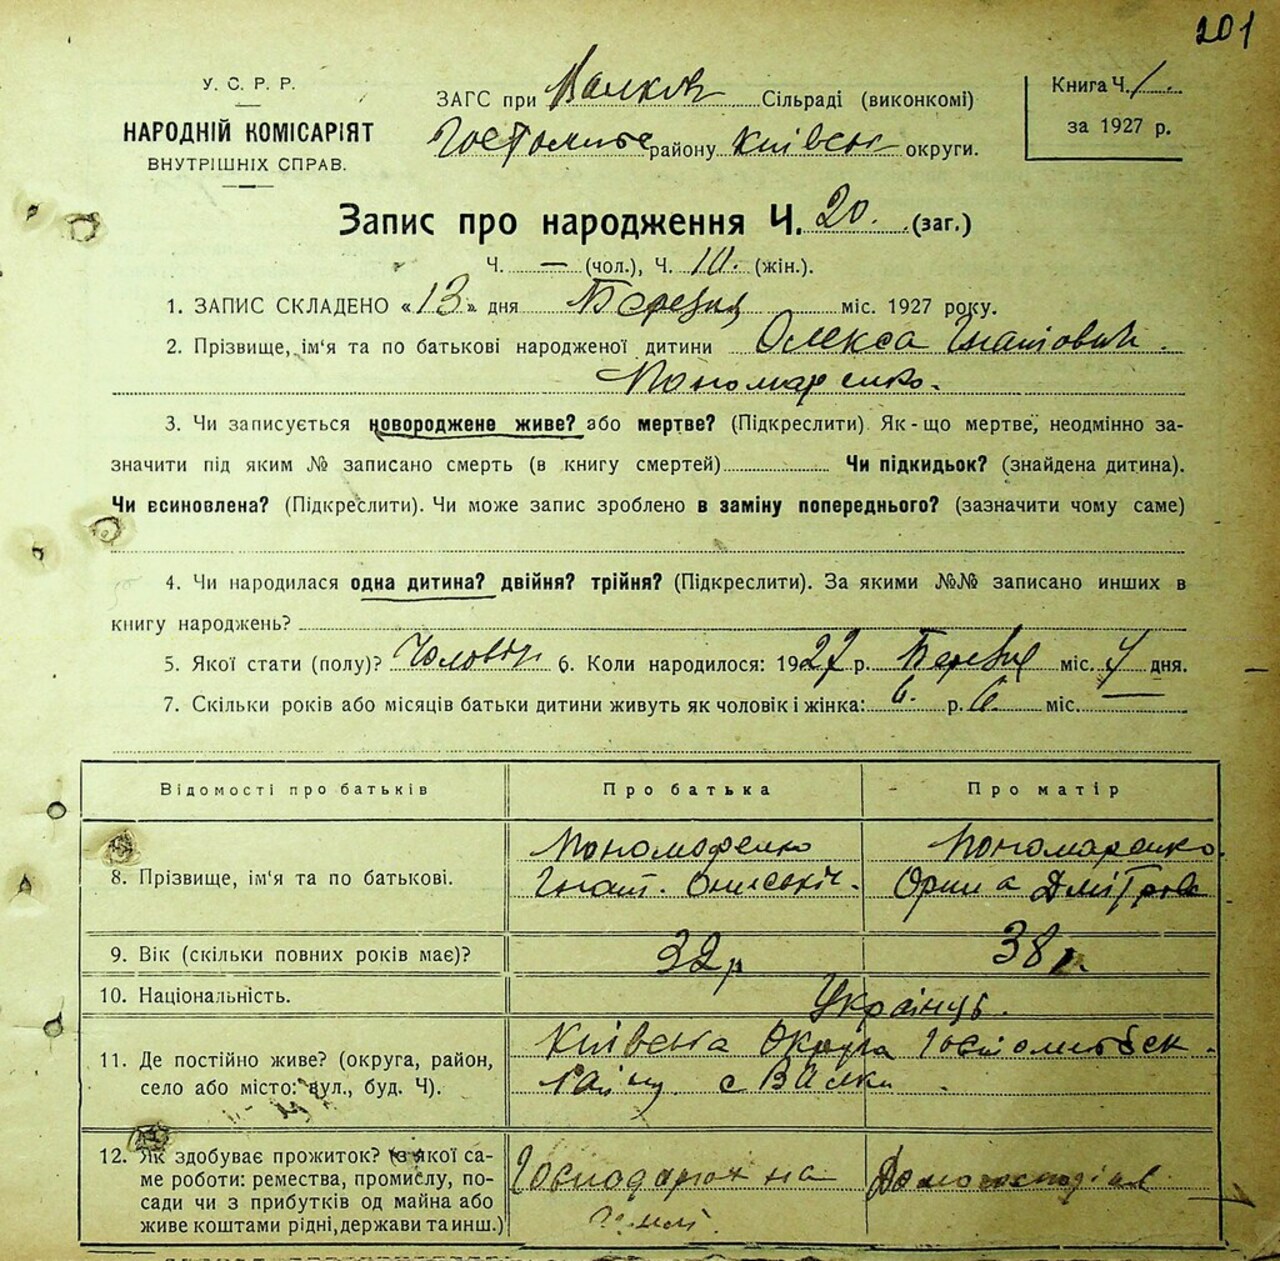 201
У. С. Р. Р.
НАРОДНІЙ КОМІСАРІЯТ
ВНУТРІШНІХ СПРАВ.
ЗАГС при Валков Сільраді (виконкомі)
району Київськ округи.
Книга Ч. 1
за 1927 р.
Запис про народження Ч. 20. (заг.)
Ч. — (чол.), Ч. 10. (жін.).
1. ЗАПИС СКЛАДЕНО «13» дня Березня міс. 1927 року.
2. Прізвище, ім'я та по батькові народженої дитини Олекса Гнатович
Пономаренко.
3. Чи записується новороджене живе? або мертве? (Підкреслити). Як-що мертве, неодмінно за-
значити під яким № записано смерть (в книгу смертей) Чи підкидьок? (знайдена дитина).
Чи всиновлена? (Підкреслити). Чи може запис зроблено в заміну попереднього? (зазначити чому саме)
4. Чи народилася одна дитина? двійня? трійня? (Підкреслити). За якими №№ записано инших в
книгу народжень?
5. Якої стати (полу)? Чоловіч 6. Коли народилося: 1927 р. Березня міс. дня.
7. Скільки років або місяців батьки дитини живуть як чоловік і жінка: 6. р. 6. міс.
Відомості про батьків Про батька Про матір
Пономаренко Пономаренко.
8. Прізвище, ім'я та по батькові. Гнат. Орина Дмітров
9. Вік (скільки повних років має)? 32 р 38 р.
10. Національність. Українці.
Київська Округа
11. Де постійно живе? (округа, район,
село або місто: вул., буд. Ч). с Валки
12. Як здобуває прожиток? (з якої са-
ме роботи: ремества, промислу, по-
сади чи з прибутків од майна або
живе коштами рідні, держави та инш.)
на
землі.